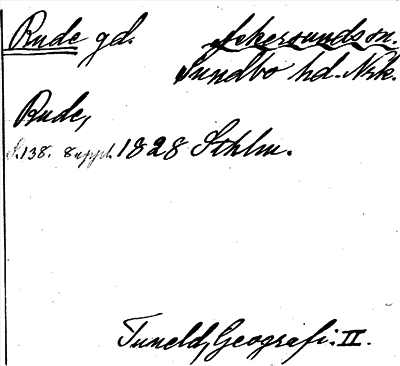 Rude gd. Askersundson.
Sundbo hd. Nrk.
Rude,
S. 138. Suppl. 1828 Sthlm.
Tuneld, Geografi. II.